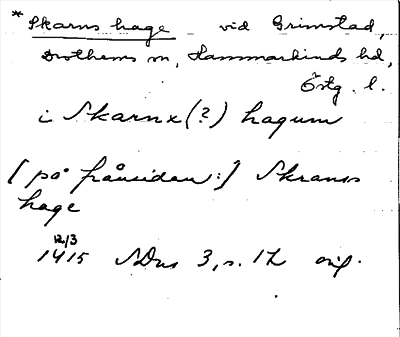 * Skarns hage vid Grimstad,
Drothems sn, Hammarkinds hd,
Östg. l.
i Skarnx (?) hagum
[på frånsidan:] Skranss
hage
12/3
1415 SDns 3, s. 12 orig.